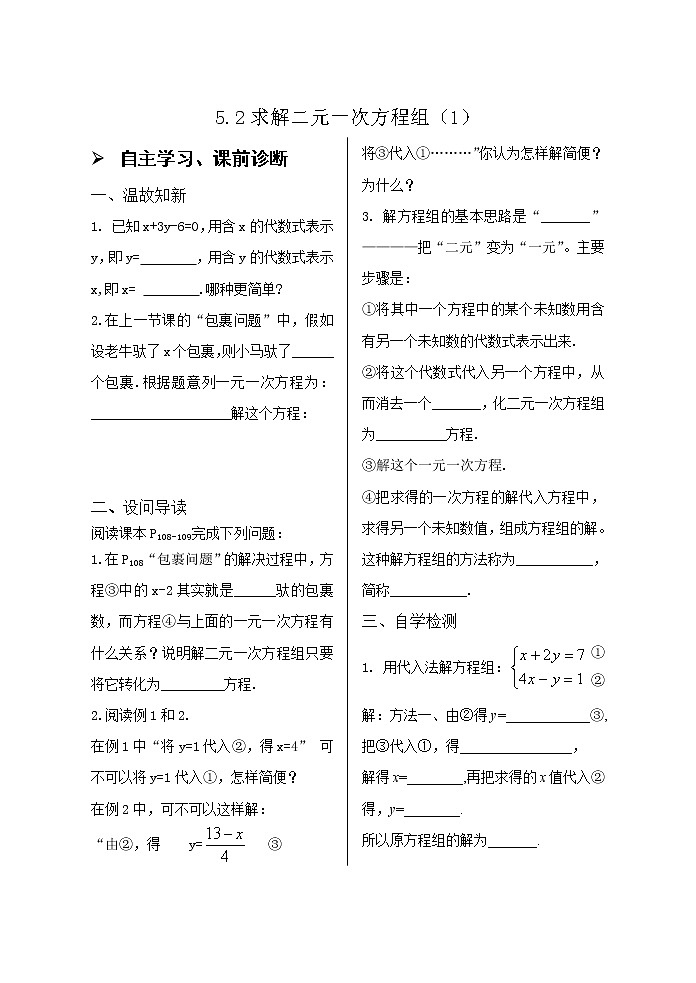 5.2求解二元一次方程组（1）
➢ 自主学习、课前诊断
一、温故知新
1. 已知x+3y-6=0,用含x的代数式表示
y,即y=________,用含y的代数式表示
x,即x= ________.哪种更简单?
2.在上一节课的“包裹问题”中，假如
设老牛驮了x个包裹,则小马驮了______
个包裹.根据题意列一元一次方程为：
____________________解这个方程：
二、设问导读
阅读课本P108-109完成下列问题：
1.在P108“包裹问题”的解决过程中，方
程③中的x-2其实就是______驮的包裹
数，而方程④与上面的一元一次方程有
什么关系？说明解二元一次方程组只要
将它转化为_________方程.
2.阅读例1和2.
在例1中“将y=1代入②，得x=4” 可
不可以将y=1代入①，怎样简便?
在例2中，可不可以这样解：
“由②，得 y=(13-x)/4 ③
将③代入①………”你认为怎样解简便？
为什么？
3. 解方程组的基本思路是“_______”
————把“二元”变为“一元”。主要
步骤是：
①将其中一个方程中的某个未知数用含
有另一个未知数的代数式表示出来.
②将这个代数式代入另一个方程中，从
而消去一个_______，化二元一次方程组
为__________方程.
③解这个一元一次方程.
④把求得的一次方程的解代入方程中，
求得另一个未知数值，组成方程组的解。
这种解方程组的方法称为___________，
简称___________.
三、自学检测
1. 用代入法解方程组：{x+2y=7 ①
4x-y=1 ②
解：方法一、由②得y=____________③,
把③代入①，得________________，
解得x=________,再把求得的x值代入②
得，y=________.
所以原方程组的解为_______.